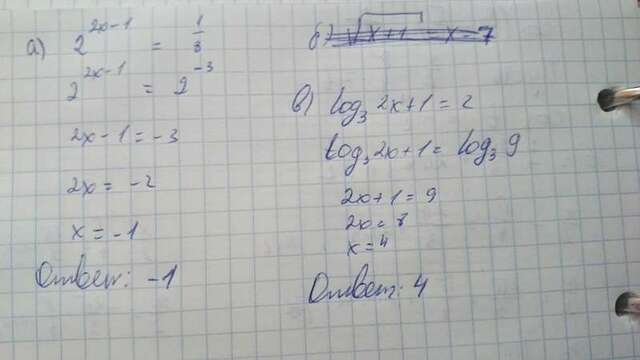 а) 2^{2x-1} = 1/8
2^{2x-1} = 2^{-3}
2x-1 = -3
2x = -2
x = -1
Ответ: -1
б) √x+1 = x-7
в) log₃ 2x+1 = 2
log₃ 2x+1 = log₃ 9
2x+1 = 9
2x = 8
x = 4
Ответ: 4